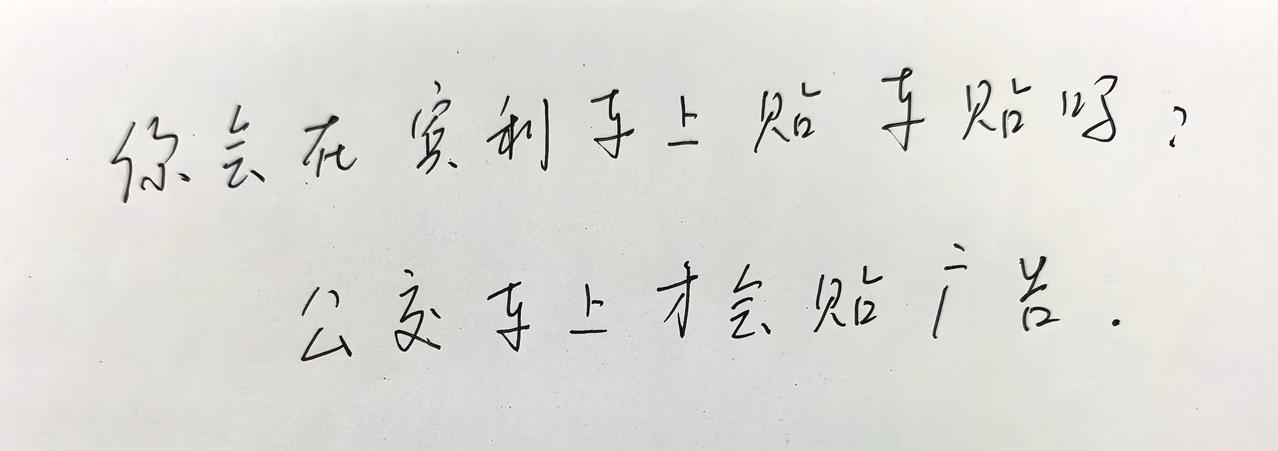 你会在宾利车上贴车贴吗?
公交车上才会贴广告.